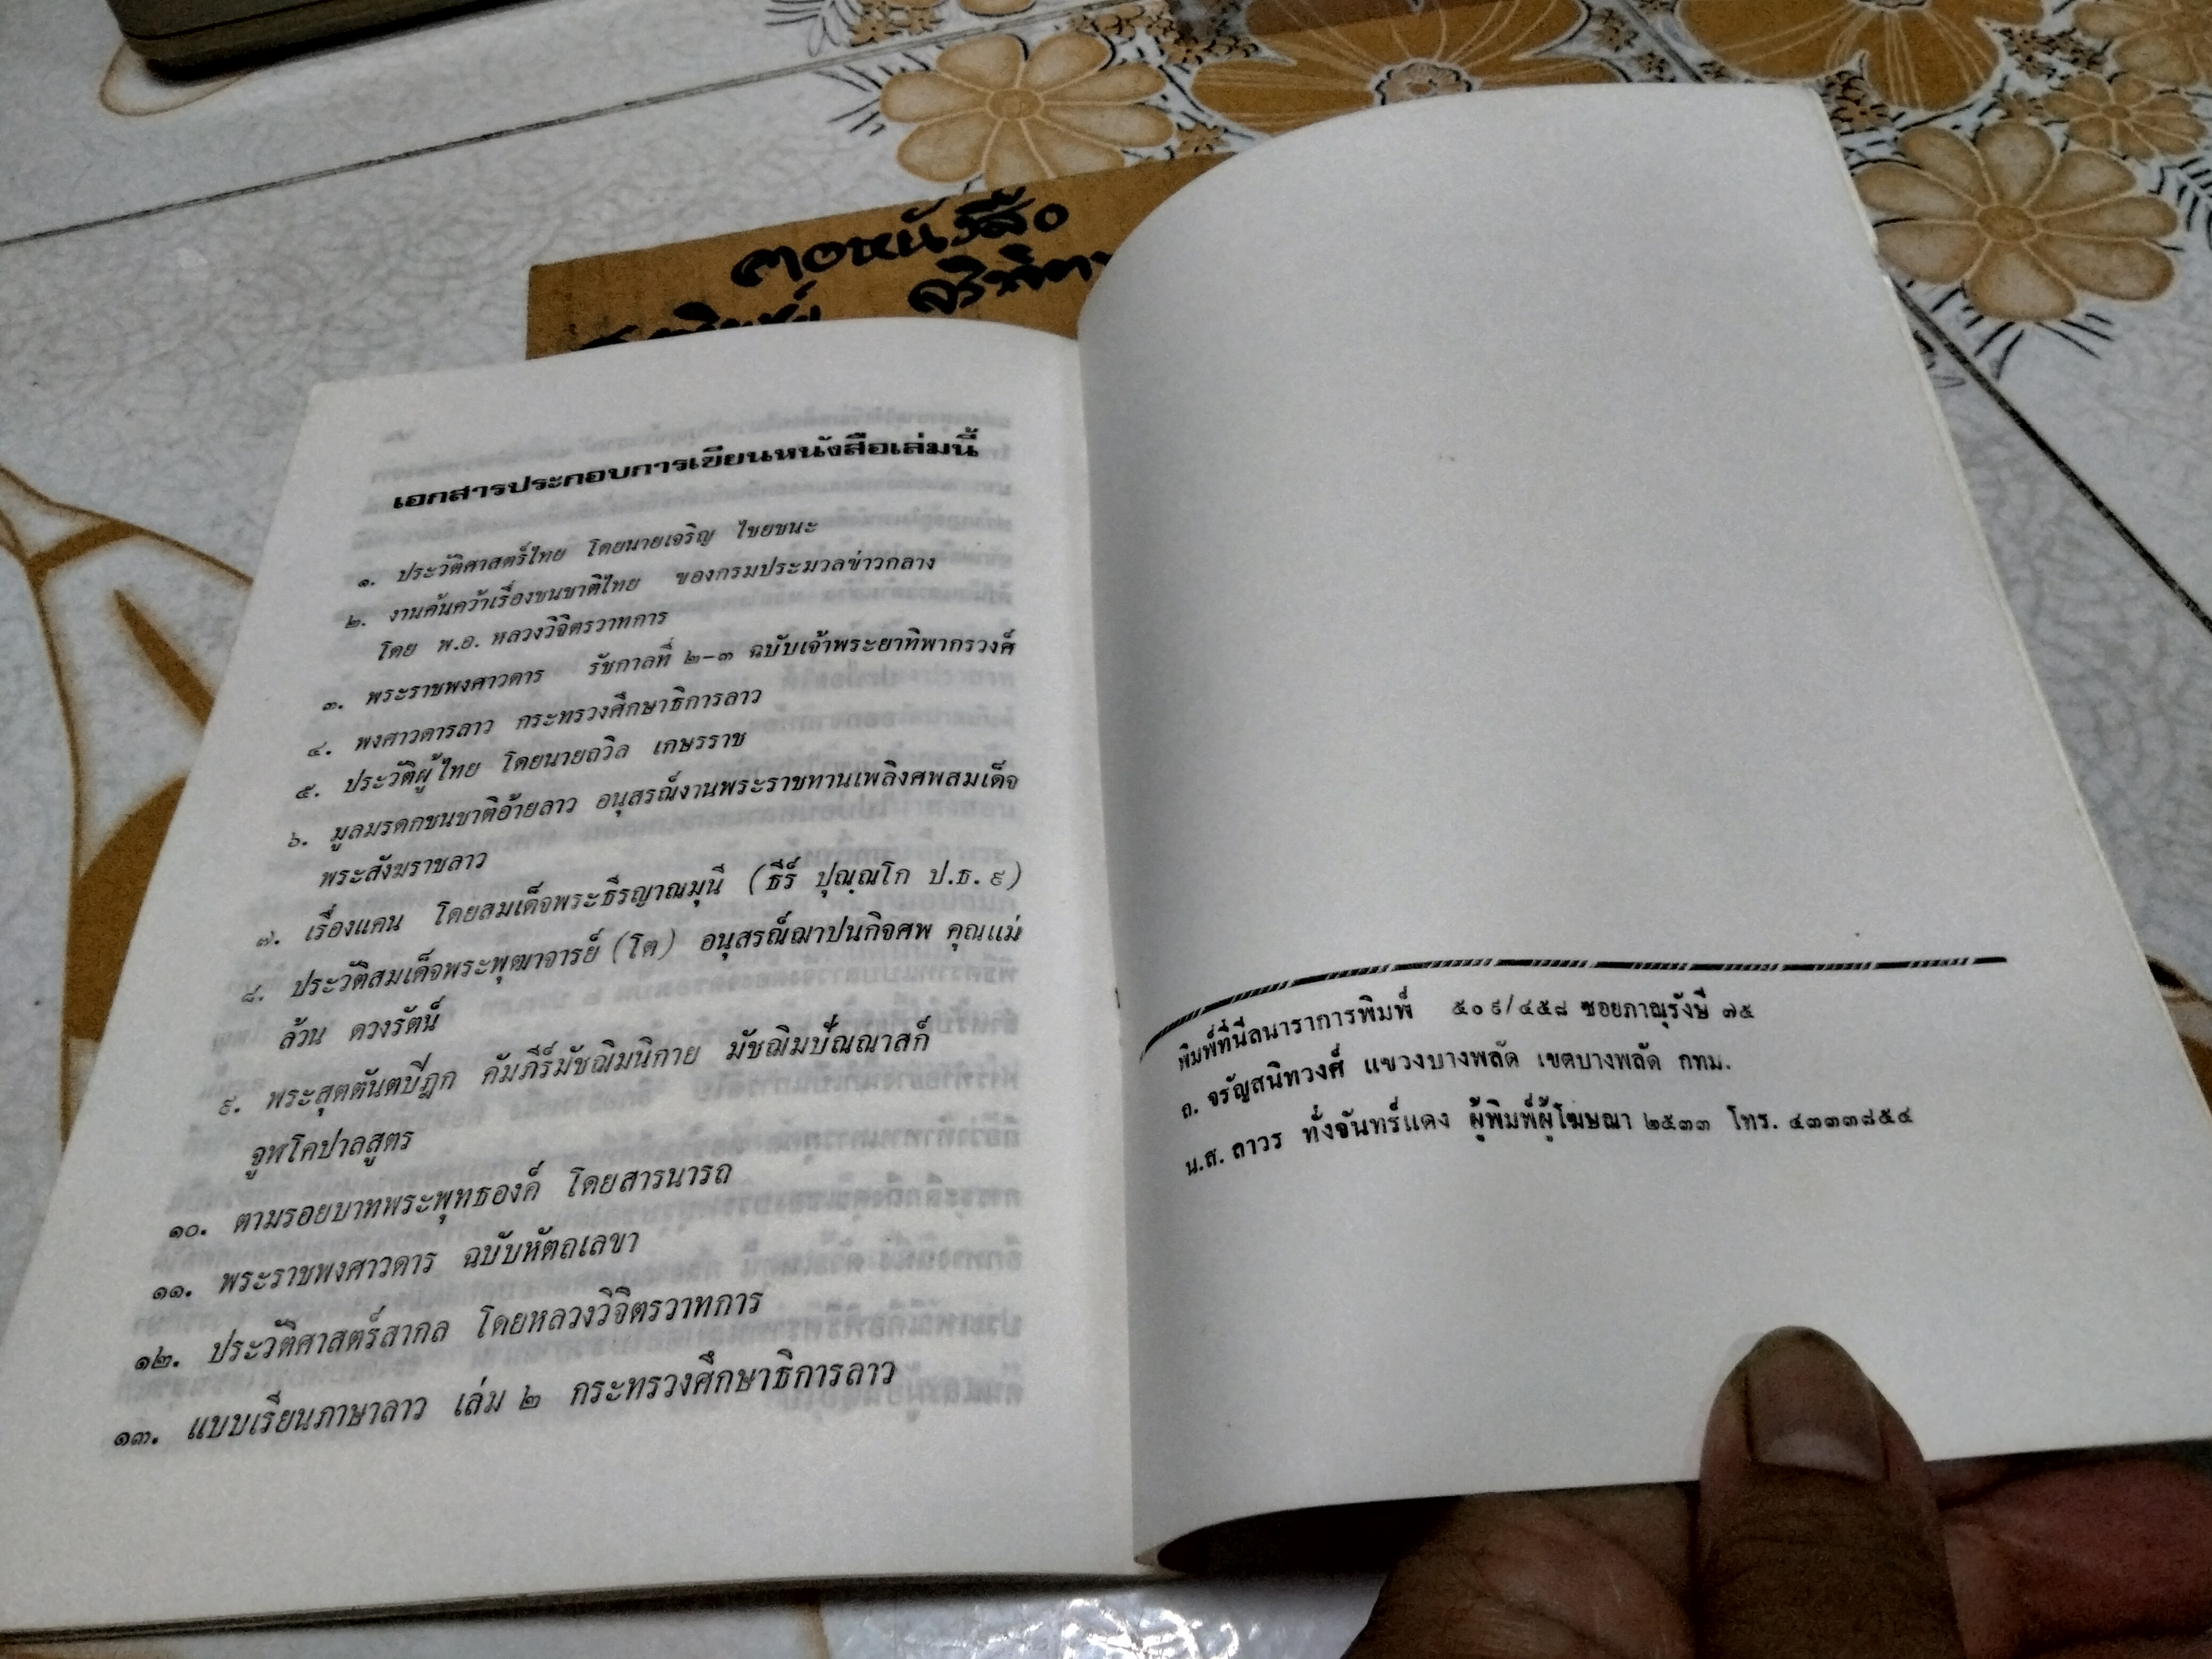 เอกสารประกอบการเขียนหนังสือเล่มนี้
๑. ประวัติศาสตร์ไทย โดยนายเจริญ ไชยชนะ
๒. งานค้นคว้าเรื่องชนชาติไทย ของกรมประมวลข่าวกลาง
โดย พ.อ. หลวงวิจิตรวาทการ
๓. พระราชพงศาวดาร รัชกาลที่ ๒-๓ ฉบับเจ้าพระยาทิพากรวงศ์
๔. พงศาวดารลาว กระทรวงศึกษาธิการลาว
๕. ประวัติผู้ไทย โดยนายถวิล เกษรราช
๖. มูลมรดกชนชาติอ้ายลาว อนุสรณ์งานพระราชทานเพลิงศพสมเด็จ
พระสังฆราชลาว
๗. เรื่องแคน โดยสมเด็จพระธีรญาณมุนี (ธีร์ ปุณฺณโก ป.ธ. ๙)
๘. ประวัติสมเด็จพระพุฒาจารย์ (โต) อนุสรณ์ฌาปนกิจศพ คุณแม่
ล้วน ดวงรัตน์
๙. พระสุตตันตปิฎก คัมภีร์มัชฌิมนิกาย มัชฌิมปัณณาสก์
จูฬโคปาลสูตร
๑๐. ตามรอยบาทพระพุทธองค์ โดยสารนารถ
๑๑. พระราชพงศาวดาร ฉบับหัตถเลขา
๑๒. ประวัติศาสตร์สากล โดยหลวงวิจิตรวาทการ
๑๓. แบบเรียนภาษาลาว เล่ม ๒ กระทรวงศึกษาธิการลาว
พิมพ์ที่นีลนาราการพิมพ์ ๕๐๙/๔๕๘ ซอยภาณุรังษี ๗๕
ถ. จรัญสนิทวงศ์ แขวงบางพลัด เขตบางพลัด กทม.
น.ส. ถาวร ทั่งจันทร์แดง ผู้พิมพ์ผู้โฆษณา ๒๕๓๓ โทร. ๔๓๓๓๘๕๔